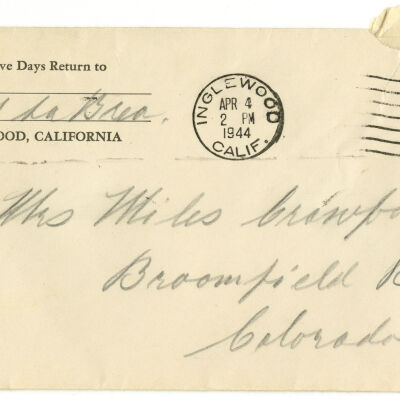 ve Days Return to
La Brea.
OOD, CALIFORNIA
INGLEWOOD
APR 4
2 PM
1944
CALIF.
Mrs Miles Crawfo
Broomfield
Colorado